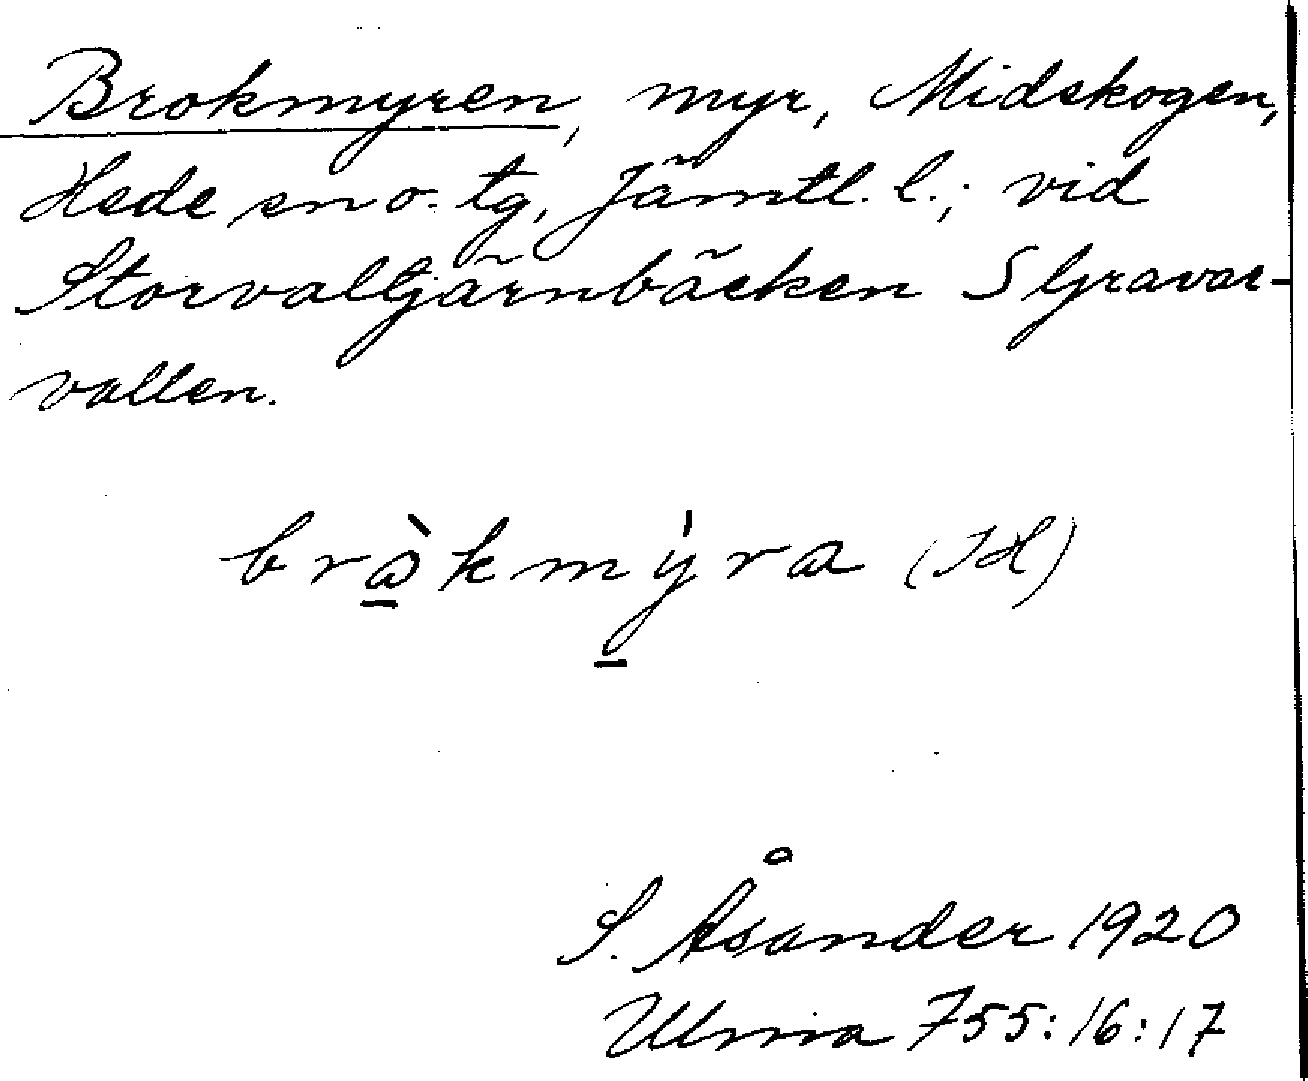 Brokmyren, myr, Midskogen,
Hede sn o. tg, Jämtl. l.; vid
Storvaltjärnbäcken S
vallen.
bràkmýra (JH)
S. Åsander 1920
Ulma 755:16:17